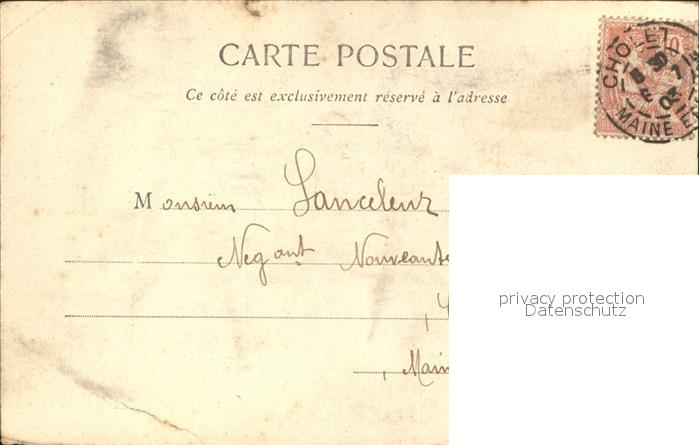 CARTE POSTALE
Ce côté est exclusivement réservé à l'adresse
CHOLET
MAINE ET
10
Monsieur Lanceleur
Negant Nouveauté
privacy protection
Datenschutz
Main